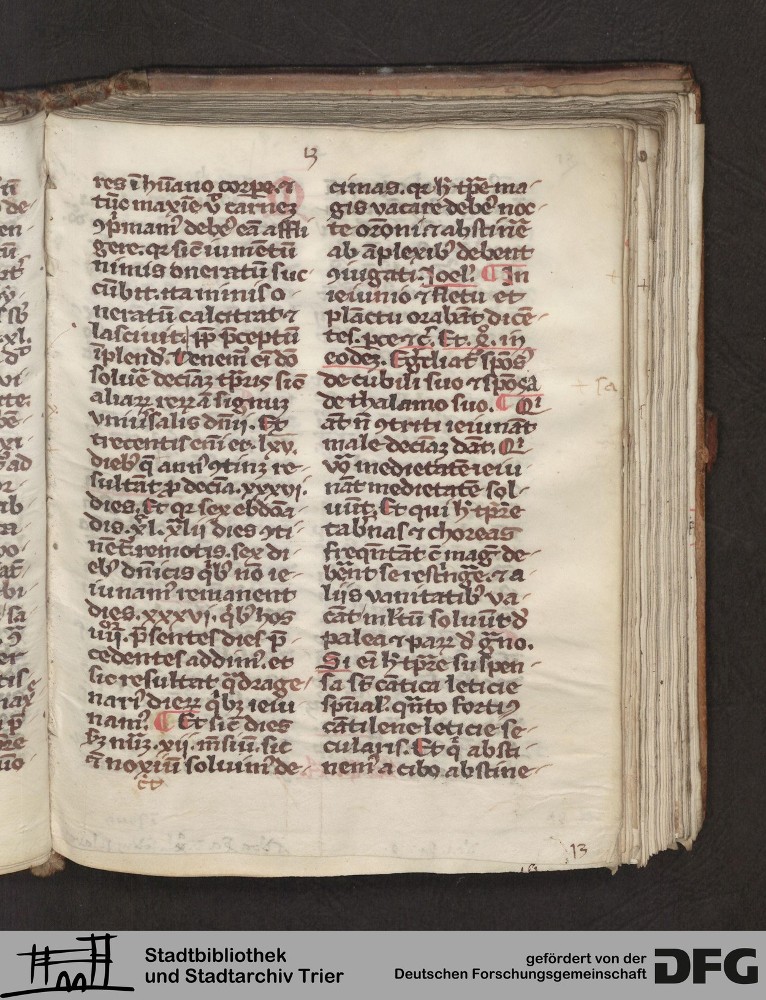 13
res ī hūano corpe. ⁊
tūc maxīe v̓ carnez
ꝯp̄mam᷒ debem᷒ eā affli
gere. qr sic̄ iumētū
nimis oneratū suc-
cūbit. ita minis o-
neratū calcitrat ⁊
lasciuit. p̄ceptū
īplend. tenem᷒ ei dō
soluē decīaz
aliarꝝ rerꝝ ī signuz
vniu̓salis dn̄ij. Et
trecentis em̄ et. lxv.
dieb᷒ q̄ ann᷒ ꝯtinz re-
sultāt ꝓ decīa. xxxvi.
dies. Et qr sex ebdōa-
dis. xl. xlii dies ꝯti-
nēt. remotis. sex di-
eb᷒ dn̄icis qͥb᷒ nō ie-
iunam᷒ remanent
dies. xxxvi. qͥb᷒ hos
iiij. p̄sentes dies p̄-
cedentes addim᷒. et
sic resultat qͣdrage-
nari᷒ dierꝝ qͥbz ieiu
nam᷒. ¶ Et sic̄ dies
hz nūz. xij. m̄siū. sic
ī noxiū soluim᷒ de-
cimas. qr h̓ tp̄e ma-
gis vacare debēt noc-
te orōni ⁊ abstinē
ab āplexib᷒ debent
ꝯiugati. Joel. ¶ In
ieiunio ⁊ fletu et
planctu orabāt dicē-
tes. pce ⁊c̓. Et. g̊. in
eodez. Egrediat᷒ spōs᷒
de cubili suo ⁊ spōsa
de thalamo suo. ¶ Qi
āt nō ꝯtriti ieiunāt
male decīaz dāt. Qi
v̊o medietatē ieiu-
nāt medietatē sol-
uūt. Et qui h̓ tp̄re
tab̓nas ⁊ choreas
freqn̄tāt c̄ mag̓ de-
bēnt se rest̓nge᷒. ⁊ a-
liis vanitatib᷒ va-
cāt ml̓tū soluūt d̓
palea ⁊ parꝝ d̓ gͣno.
Si ei h̓ tp̄re suspen-
sa st̄ cātica leticie
sp̄ual. qn̄to forti᷒
cātilene leticie se-
cularis. Et qͥ absti-
nem᷒ a cibo abstine-
sa
13
Stadtbibliothek
und Stadtarchiv Trier
gefördert von der
Deutschen Forschungsgemeinschaft
DFG